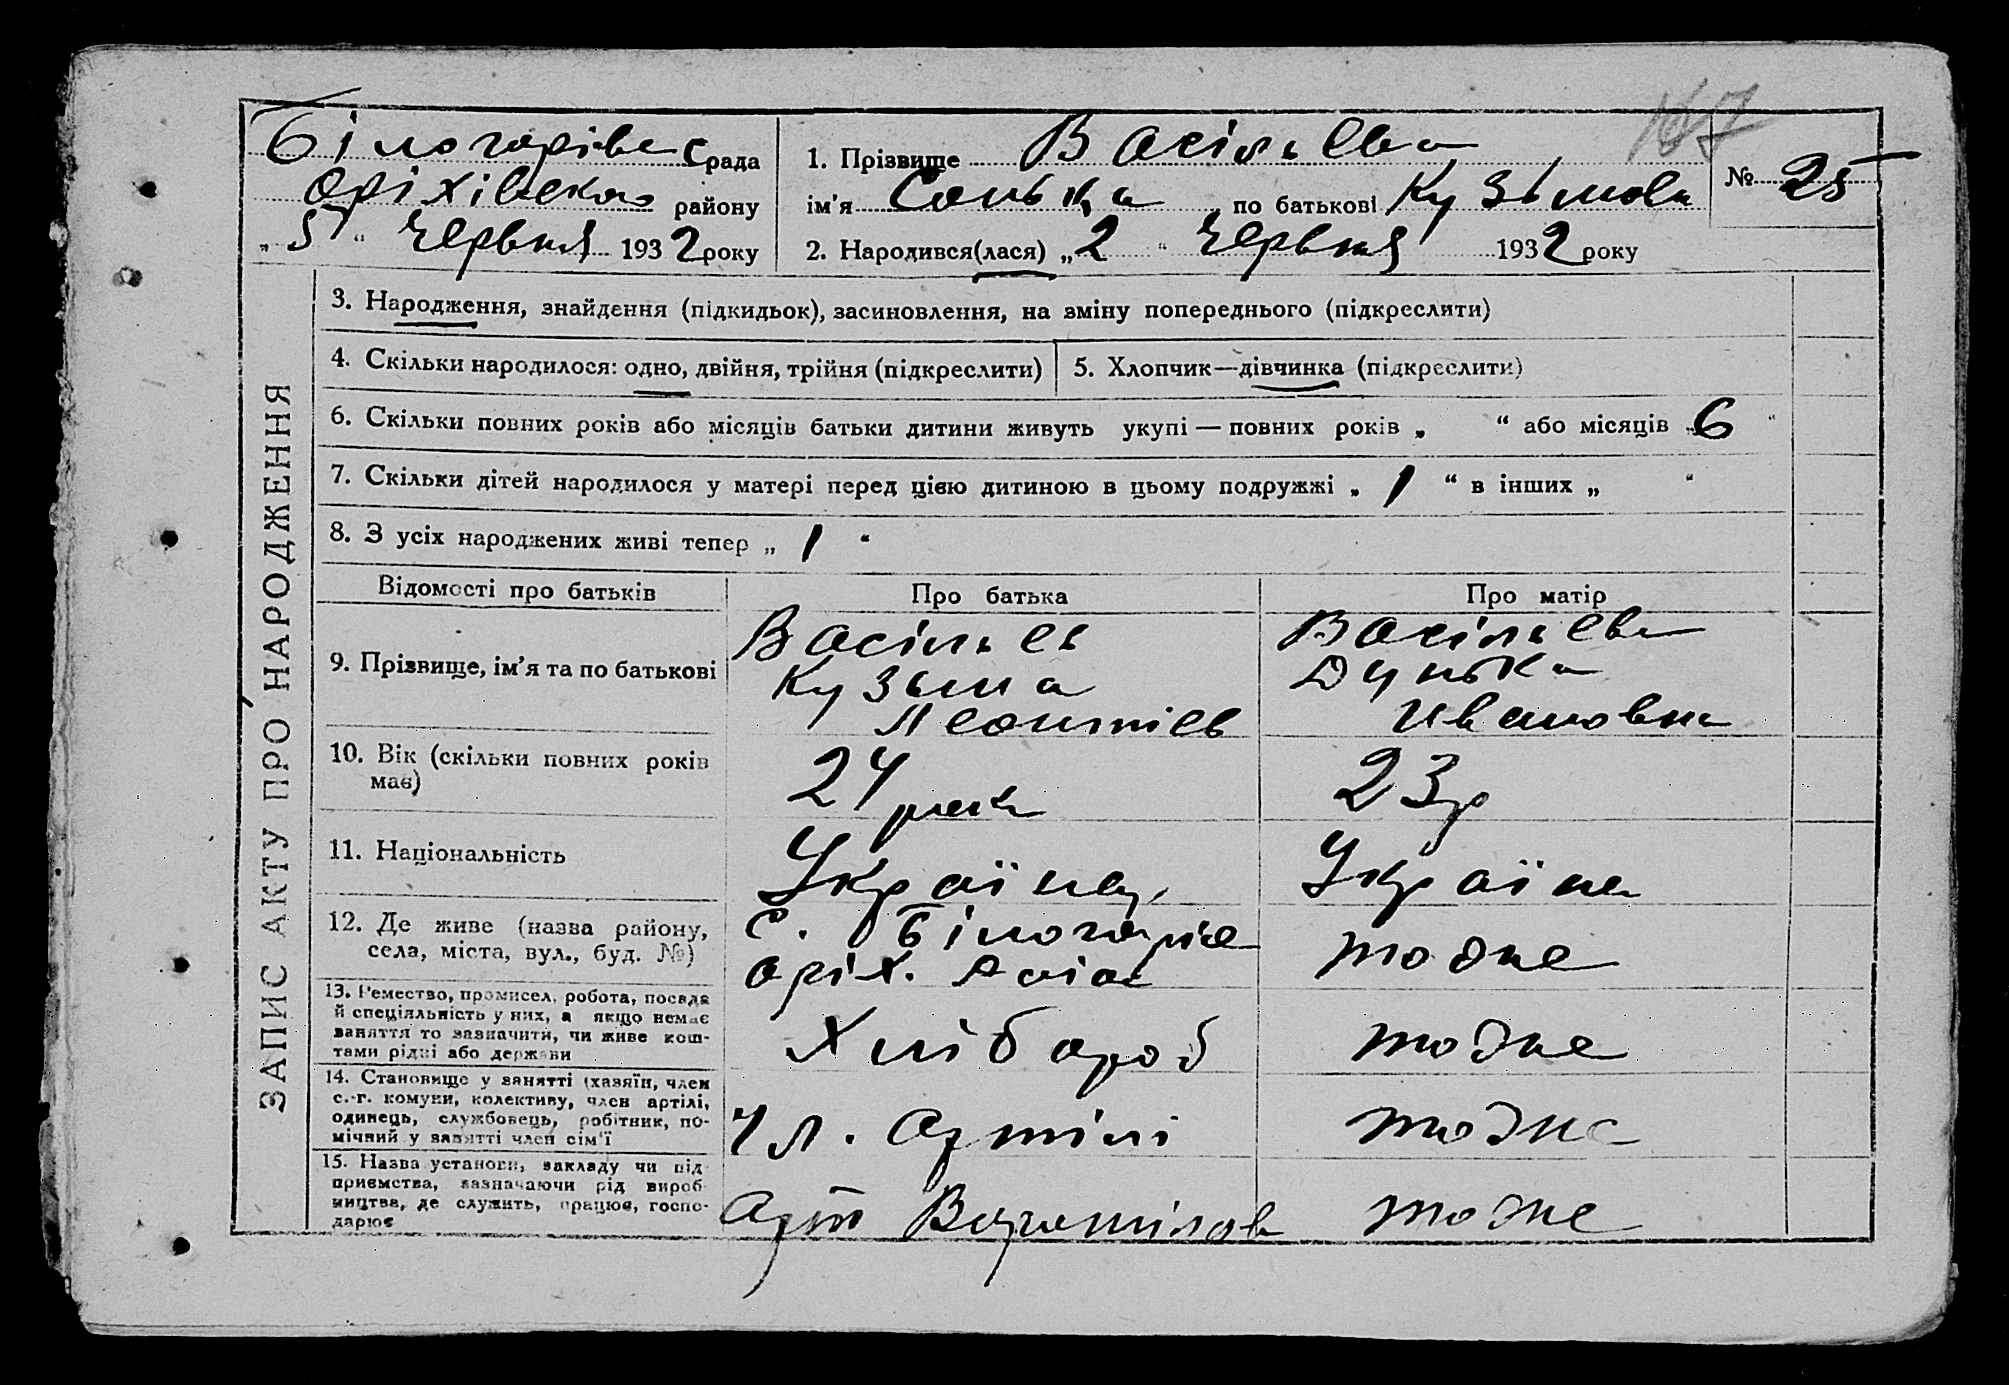 167
Білогарівс рада
Оріхівсько району
„ 5 “ Червня 1932 року
1. Прізвище Васільева
ім'я Сонька по батькові Кузьмова
№ 25
2. Народився(лася) „ 2 “ Червня 1932 року
ЗАПИС АКТУ ПРО НАРОДЖЕННЯ
3. Народження, знайдення (підкидьок), засиновлення, на зміну попереднього (підкреслити)
4. Скільки народилося: одно, двійня, трійня (підкреслити)
5. Хлопчик—дівчинка (підкреслити)
6. Скільки повних років або місяців батьки дитини живуть укупі — повних років „ “ або місяців „ 6 “
7. Скільки дітей народилося у матері перед цією дитиною в цьому подружжі „ 1 “ в інших „ “
8. З усіх народжених живі тепер „ 1 “
Відомості про батьків
Про батька
Про матір
9. Прізвище, ім'я та по батькові
Васільев
Кузьма
Леонтіев
Васільева
Дунька
Ивановна
10. Вік (скільки повних років
має)
24 рока
23 р
11. Національність
Україна
Україна
12. Де живе (назва району,
села, міста, вул., буд. №)
С.
Оріх.
тодже
13. Ремество, промисел, робота, посада
й спеціяльність у них, а якщо немає
заняття то зазначити, чи живе кош-
тами рідні або держави
Хлібороб
тодже
14. Становище у занятті (хазяїн, член
с.-г. комуни, колективу, член артілі,
одинець, службовець, робітник, по-
мічний у занятті член сім'ї
Чл. Артілі
тодже
15. Назва установи, закладу чи під-
приємства, зазначаючи рід вироб-
ництва, де служить, працює, госпо-
дарює
Арт Ворошілова
тодже